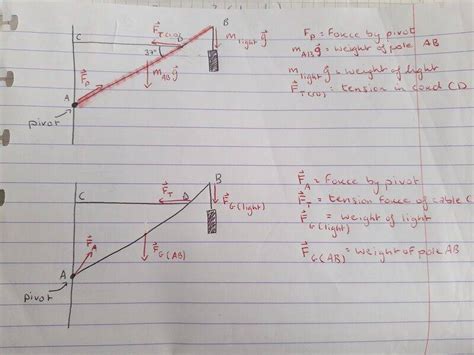 B
C
F⃗T(CD)
D
37°
m light g⃗
F⃗P
mAB g⃗
A
pivot
F⃗P = Force by pivot
mAB g⃗ = weight of pole AB
m light g⃗ = weight of light
F⃗T(CD) = tension in cord CD.
B
C
F⃗T
D
F⃗G(light)
F⃗A
F⃗G(AB)
A
pivot
F⃗A = Force by pivot
F⃗T = tension force of cable C
F⃗G(light) = weight of light
F⃗G(AB) = weight of pole AB